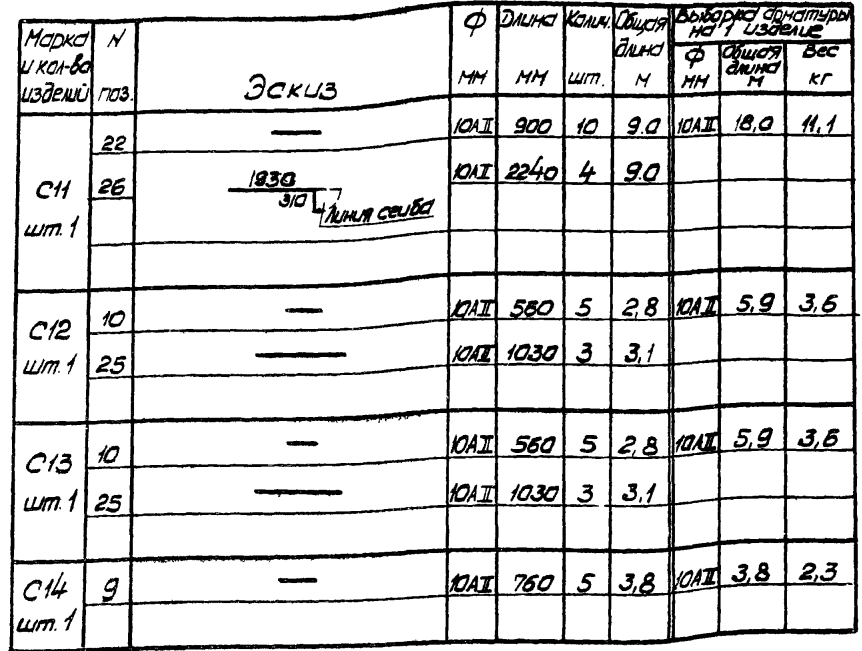 Марка и кол-во изделий N поз. Эскиз Ф мм Длина мм Колич. шт. Общая длина м Выборка арматуры на 1 изделие Ф мм Общая длина м Вес кг
С11 шт. 1
22 10АII 900 10 9.0 10АII 18,0 11,1
26 1930 310 Линия сгиба 10АII 2240 4 9.0
С12 шт. 1
10 10АII 560 5 2,8 10АII 5,9 3,6
25 10АII 1030 3 3,1
С13 шт. 1
10 10АII 560 5 2,8 10АII 5,9 3,6
25 10АII 1030 3 3,1
С14 шт. 1
9 10АII 760 5 3,8 10АII 3,8 2,3